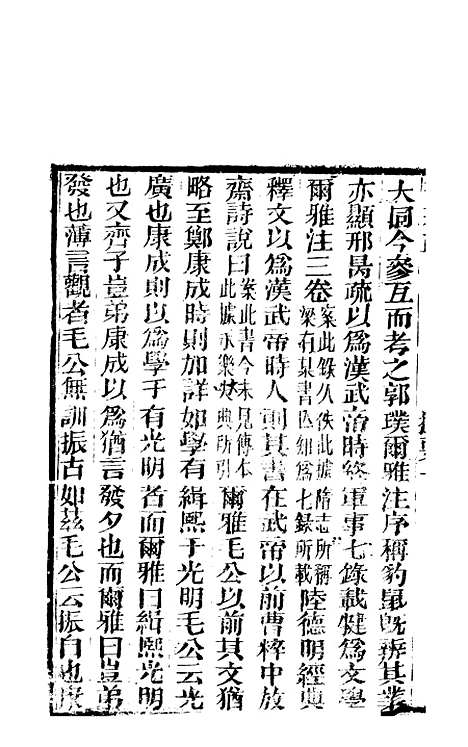 大同今參互而考之郭璞爾雅注序稱豹鼠旣辨其業
亦顯邢昺疏以爲漢武帝時終軍事七錄載犍爲文學
爾雅注三卷案此錄久佚此據隋志所稱梁有某書亡知爲七錄所載陸德明經典
釋文以爲漢武帝時人則其書在武帝以前曹粹中放
齋詩說曰案此書今未見傳本此據永樂大典所引爾雅毛公以前其文猶
略至鄭康成時則加詳如學有緝熙于光明毛公云光
廣也康成則以爲學于有光明者而爾雅曰緝熙光明
也又齊子豈弟康成以爲猶言發夕也而爾雅曰豈弟
發也薄言觀者毛公無訓振古如兹毛公云振自也康